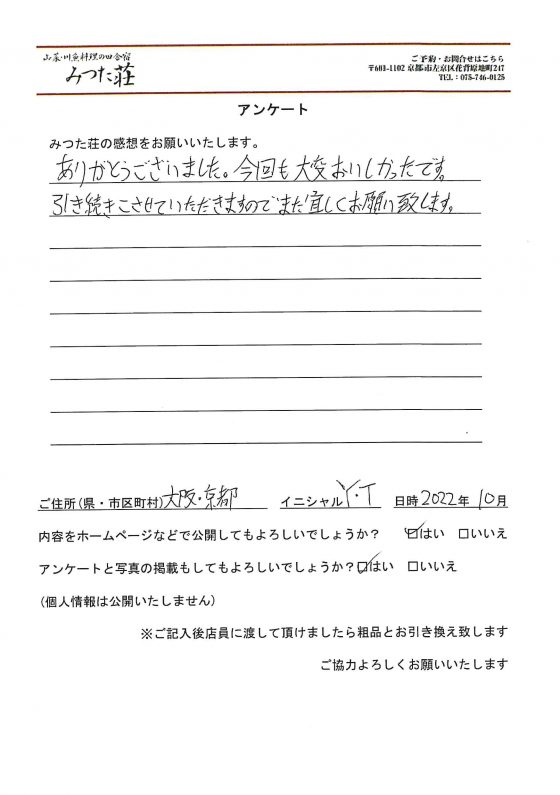 山菜・川魚料理の田舎宿
みつた荘
ご予約・お問合せはこちら
〒601-1102 京都市左京区花背原地町247
TEL：075-746-0125
アンケート
みつた荘の感想をお願いいたします。
ありがとうございました。今回も大変おいしかったです。
引き続きこさせていただきますのでまた宜しくお願い致します。
ご住所(県・市区町村)大阪・京都 イニシャル Y・T 日時 2022年 10月
内容をホームページなどで公開してもよろしいでしょうか？ ☑はい □いいえ
アンケートと写真の掲載もしてもよろしいでしょうか？☑はい □いいえ
（個人情報は公開いたしません）
※ご記入後店員に渡して頂けましたら粗品とお引き換え致します
ご協力よろしくお願いいたします